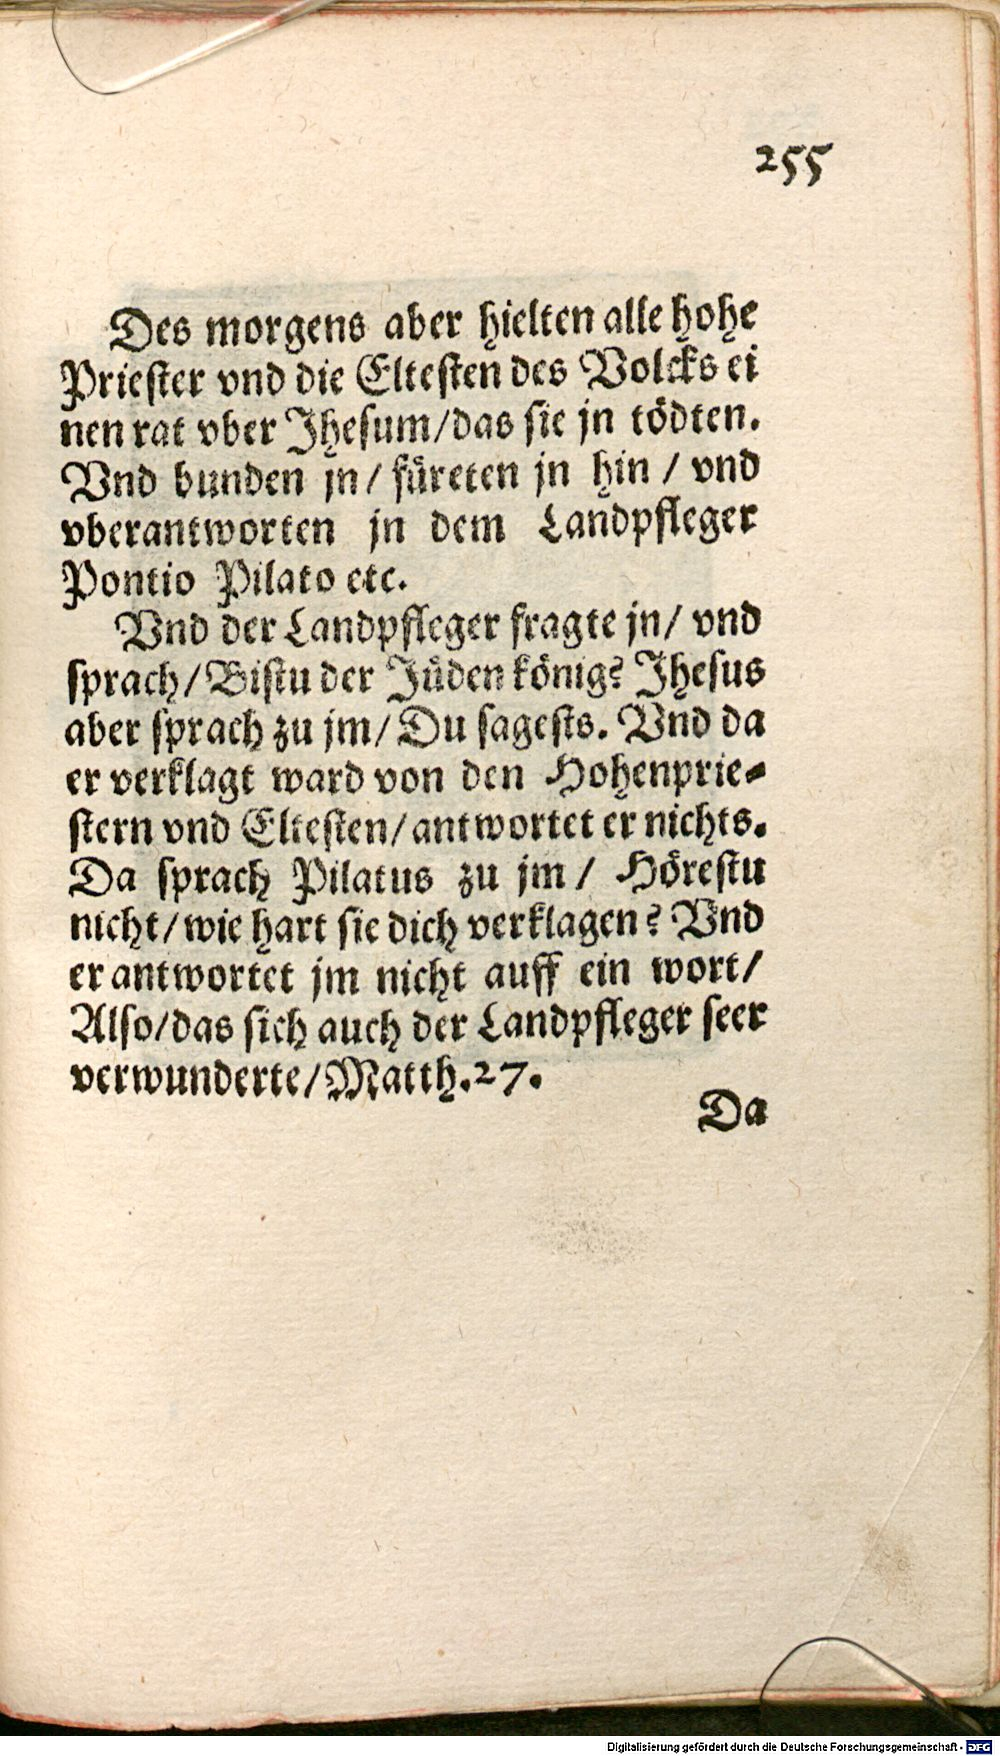 255
Des morgens aber hielten alle hohe
Priester vnd die Eltesten des Volcks ei
nen rat vber Jhesum/das sie jn tödten.
Vnd bunden jn/ füreten jn hin / vnd
vberantworten jn dem Landpfleger
Pontio Pilato etc.
Vnd der Landpfleger fragte jn/ vnd
sprach/Bistu der Jüden könig? Jhesus
aber sprach zu jm/Du sagests. Vnd da
er verklagt ward von den Hohenprie-
stern vnd Eltesten/antwortet er nichts.
Da sprach Pilatus zu jm/ Hörestu
nicht/wie hart sie dich verklagen? Vnd
er antwortet jm nicht auff ein wort/
Also/das sich auch der Landpfleger seer
verwunderte/Matth.27.
Da
Digitalisierung gefördert durch die Deutsche Forschungsgemeinschaft - DFG